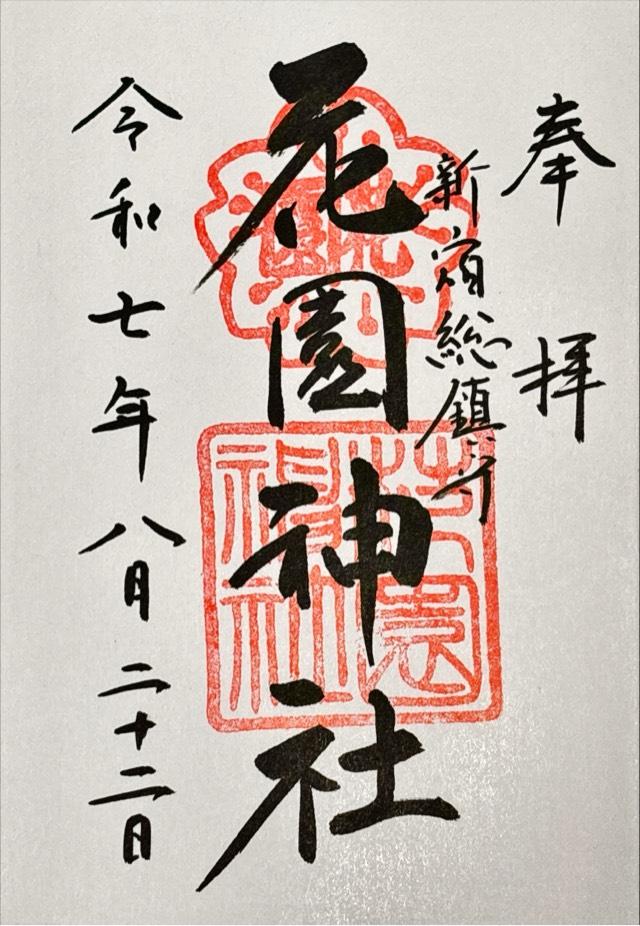 奉拝
新宿総鎮守
花園神社
令和七年八月二十二日
花園神社